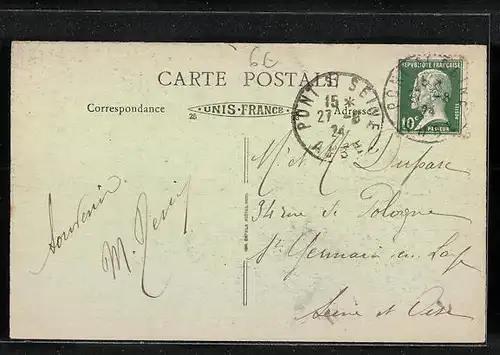 6€
CARTE POSTALE
Correspondance
UNIS-FRANCE
Adresse
25
PONT S/ SEINE
15 *
27 - 8
24
AUBE
REPUBLIQUE FRANÇAISE
10c
POSTES
PASTEUR
M. et Mme Dupare
34 rue de Pologne
St Germain en Laye
Seine et Oise
Souvenir
M.